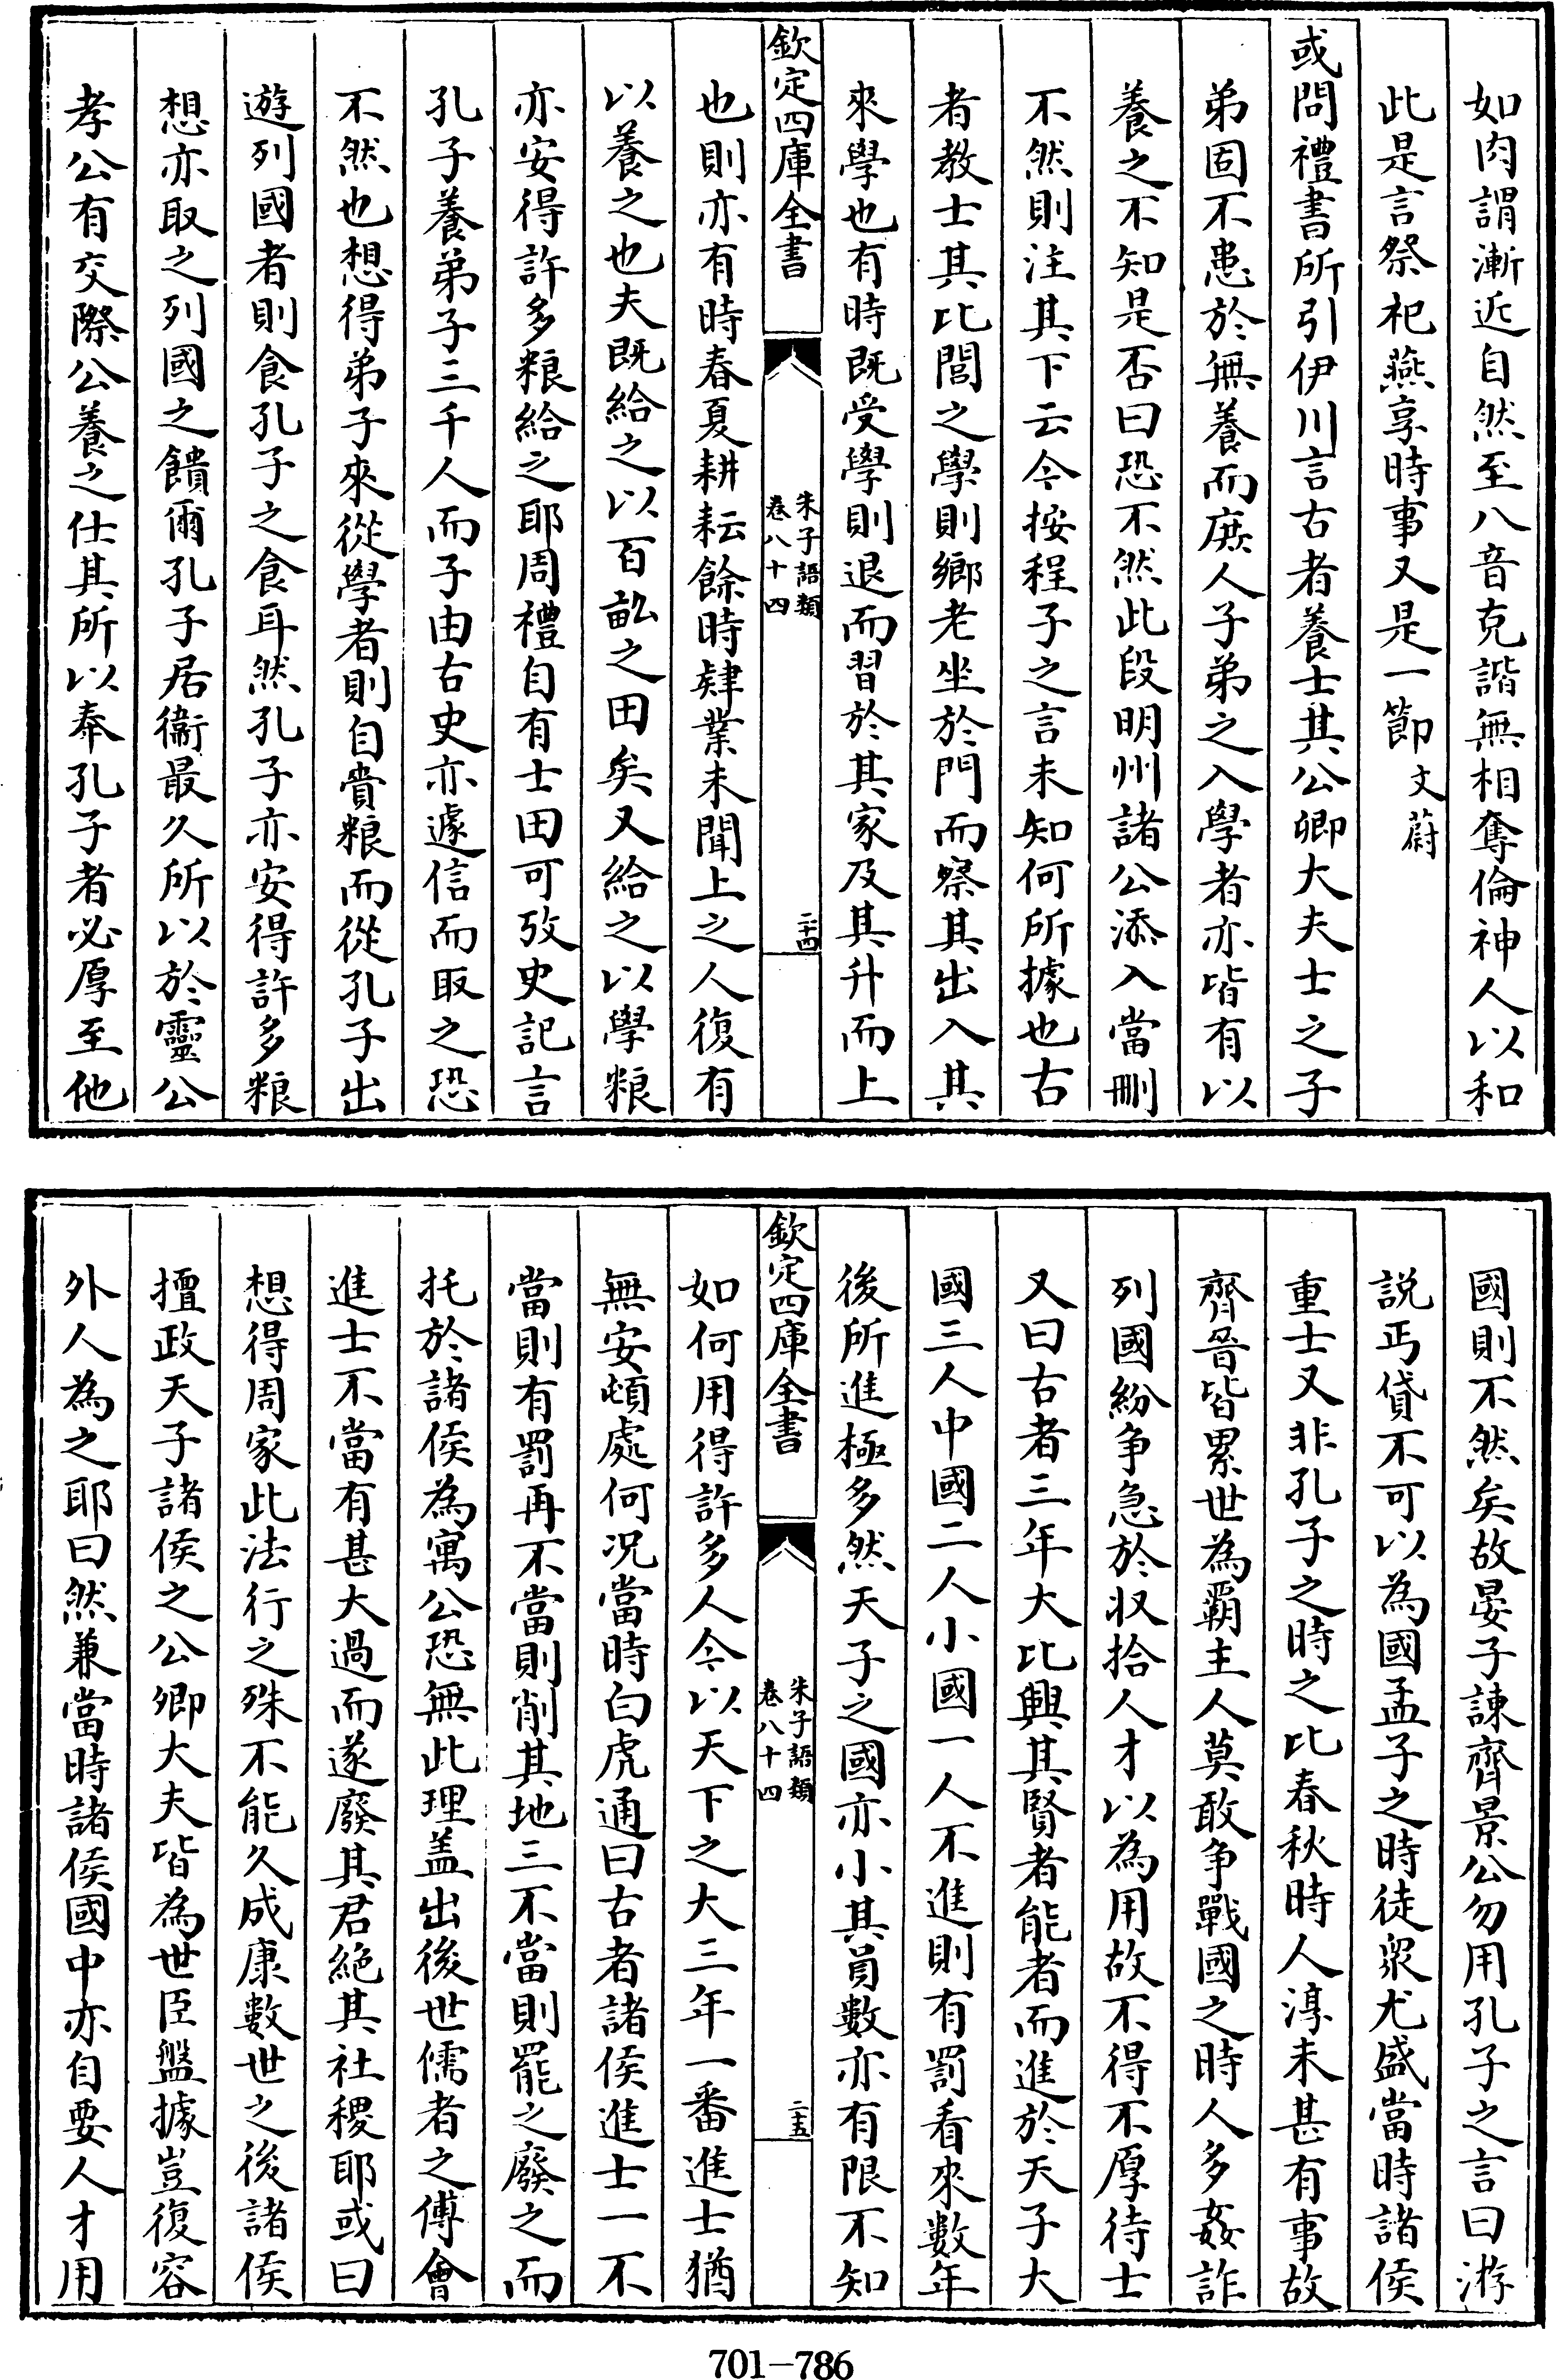 如肉謂漸近自然至八音克諧無相奪倫神人以和
此是言祭祀燕享時事又是一節文蔚
或問禮書所引伊川言古者養士其公卿大夫士之子
弟固不患於無養而庶人子弟之入學者亦皆有以
養之不知是否曰恐不然此段明州諸公添入當刪
不然則注其下云今按程子之言未知何所據也古
者教士其比閭之學則鄉老坐於門而察其出入其
來學也有時既受學則退而習於其家及其升而上
欽定四庫全書
朱子語類
卷八十四
二十四
也則亦有時春夏耕耘餘時肄業未聞上之人復有
以養之也夫既給之以百畝之田矣又給之以學粮
亦安得許多粮給之耶周禮自有士田可攷史記言
孔子養弟子三千人而子由古史亦遽信而取之恐
不然也想得弟子來從學者則自賫粮而從孔子出
遊列國者則食孔子之食耳然孔子亦安得許多粮
想亦取之列國之饋爾孔子居衞最久所以於靈公
孝公有交際公養之仕其所以奉孔子者必厚至他
國則不然矣故晏子諫齊景公勿用孔子之言曰游
説丐貸不可以為國孟子之時徒衆尤盛當時諸侯
重士又非孔子之時之比春秋時人淳未甚有事故
齊晉皆累世為霸主人莫敢争戰國之時人多姦詐
列國紛争急於收拾人才以為用故不得不厚待士
又曰古者三年大比興其賢者能者而進於天子大
國三人中國二人小國一人不進則有罰看來數年
後所進極多然天子之國亦小其員數亦有限不知
欽定四庫全書
朱子語類
卷八十四
二十五
如何用得許多人今以天下之大三年一番進士猶
無安頓處何况當時白虎通曰古者諸侯進士一不
當則有罰再不當則削其地三不當則罷之廢之而
托於諸侯為寓公恐無此理盖出後世儒者之傅會
進士不當有甚大過而遂廢其君絶其社稷耶或曰
想得周家此法行之殊不能久成康數世之後諸侯
擅政天子諸侯之公卿大夫皆為世臣盤據豈復容
外人為之耶曰然兼當時諸侯國中亦自要人才用
701-786